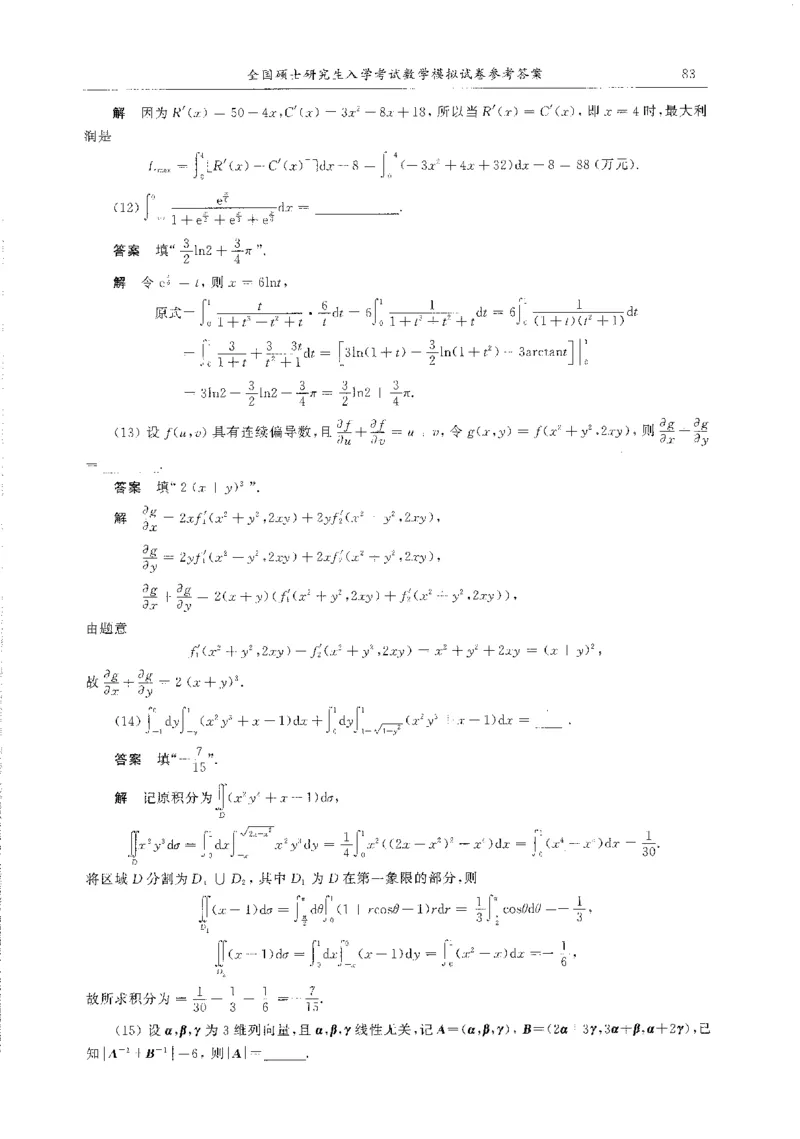 全国硕士研究生入学考试数学模拟试卷参考答案 83
解 因为 R′(x) = 50 − 4x, C′(x) = 3x² − 8x + 18, 所以当 R′(x) = C′(x), 即 x = 4 时, 最大利
润是
= ∫₀⁴ [R′(x) − C′(x)]dx − 8 = ∫₀⁴ (−3x² + 4x + 32)dx − 8 = 88 (万元).
(12) dx = ______.
答案 填“ 3/2 ln2 + 3/4 π ”.
解 令 = t, 则 x = 6lnt,
原式 = ∫₀¹ · 6/t dt = 6∫₀¹ dt = 6∫₀¹ 1/((1+t)(t²+1)) dt
= ∫₀¹ 3/(1+t) + (3 − 3t)/(t²+1) dt = [3ln(1+t) − 3/2 ln(1+t²) + 3arctant]|₀¹
= 3ln2 − 3/2 ln2 + 3/4 π = 3/2 ln2 + 3/4 π.
(13) 设 f(u,v) 具有连续偏导数, 且 ∂f/∂u + ∂f/∂v = u + v, 令 g(x,y) = f(x² + y², 2xy), 则 ∂g/∂x + ∂g/∂y
= ______.
答案 填“ 2 (x + y)³ ”.
解 ∂g/∂x = 2xf₁′(x² + y², 2xy) + 2yf₂′(x² + y², 2xy),
∂g/∂y = 2yf₁′(x² + y², 2xy) + 2xf₂′(x² + y², 2xy),
∂g/∂x + ∂g/∂y = 2(x + y)(f₁′(x² + y², 2xy) + f₂′(x² + y², 2xy)),
由题意
f₁′(x² + y², 2xy) + f₂′(x² + y², 2xy) = x² + y² + 2xy = (x + y)²,
故 ∂g/∂x + ∂g/∂y = 2 (x + y)³.
(14) ∫₋₁⁰ dy∫₋ᵧ¹ (x²y³ + x − 1)dx + ∫₀¹ dy∫_{1−√(1−y²)}^1 (x²y³ + x − 1)dx = ____ .
答案 填“ − 7/15 ”.
解 记原积分为 ∬_D (x²y³ + x − 1)dσ,
∬_D x²y³dσ = ∫₀¹ dx∫_{−x}^{√(2x−x²)} x²y³dy = 1/4 ∫₀¹ x²((2x − x²)² − x⁴)dx = ∫₀¹ (x⁴ − x⁵)dx = 1/30.
将区域 D 分割为 D₁ ∪ D₂, 其中 D₁ 为 D 在第一象限的部分, 则
∬_{D₁} (x − 1)dσ = ∫_{π/2}^π dθ∫₀¹ (1 + rcosθ − 1)rdr = 1/3 ∫_{π/2}^π cosθdθ = − 1/3,
∬_{D₂} (x − 1)dσ = ∫₀¹ dx∫₋ₓ⁰ (x − 1)dy = ∫₀¹ (x² − x)dx = − 1/6,
故所求积分为 = 1/30 − 1/3 − 1/6 = − 7/15.
(15) 设 α,β,γ 为 3 维列向量, 且 α,β,γ 线性无关, 记 A = (α,β,γ), B = (2α + 3γ, 3α + β, α + 2γ), 已
知 |A⁻¹ + B⁻¹| = 6, 则 |A| = ______.